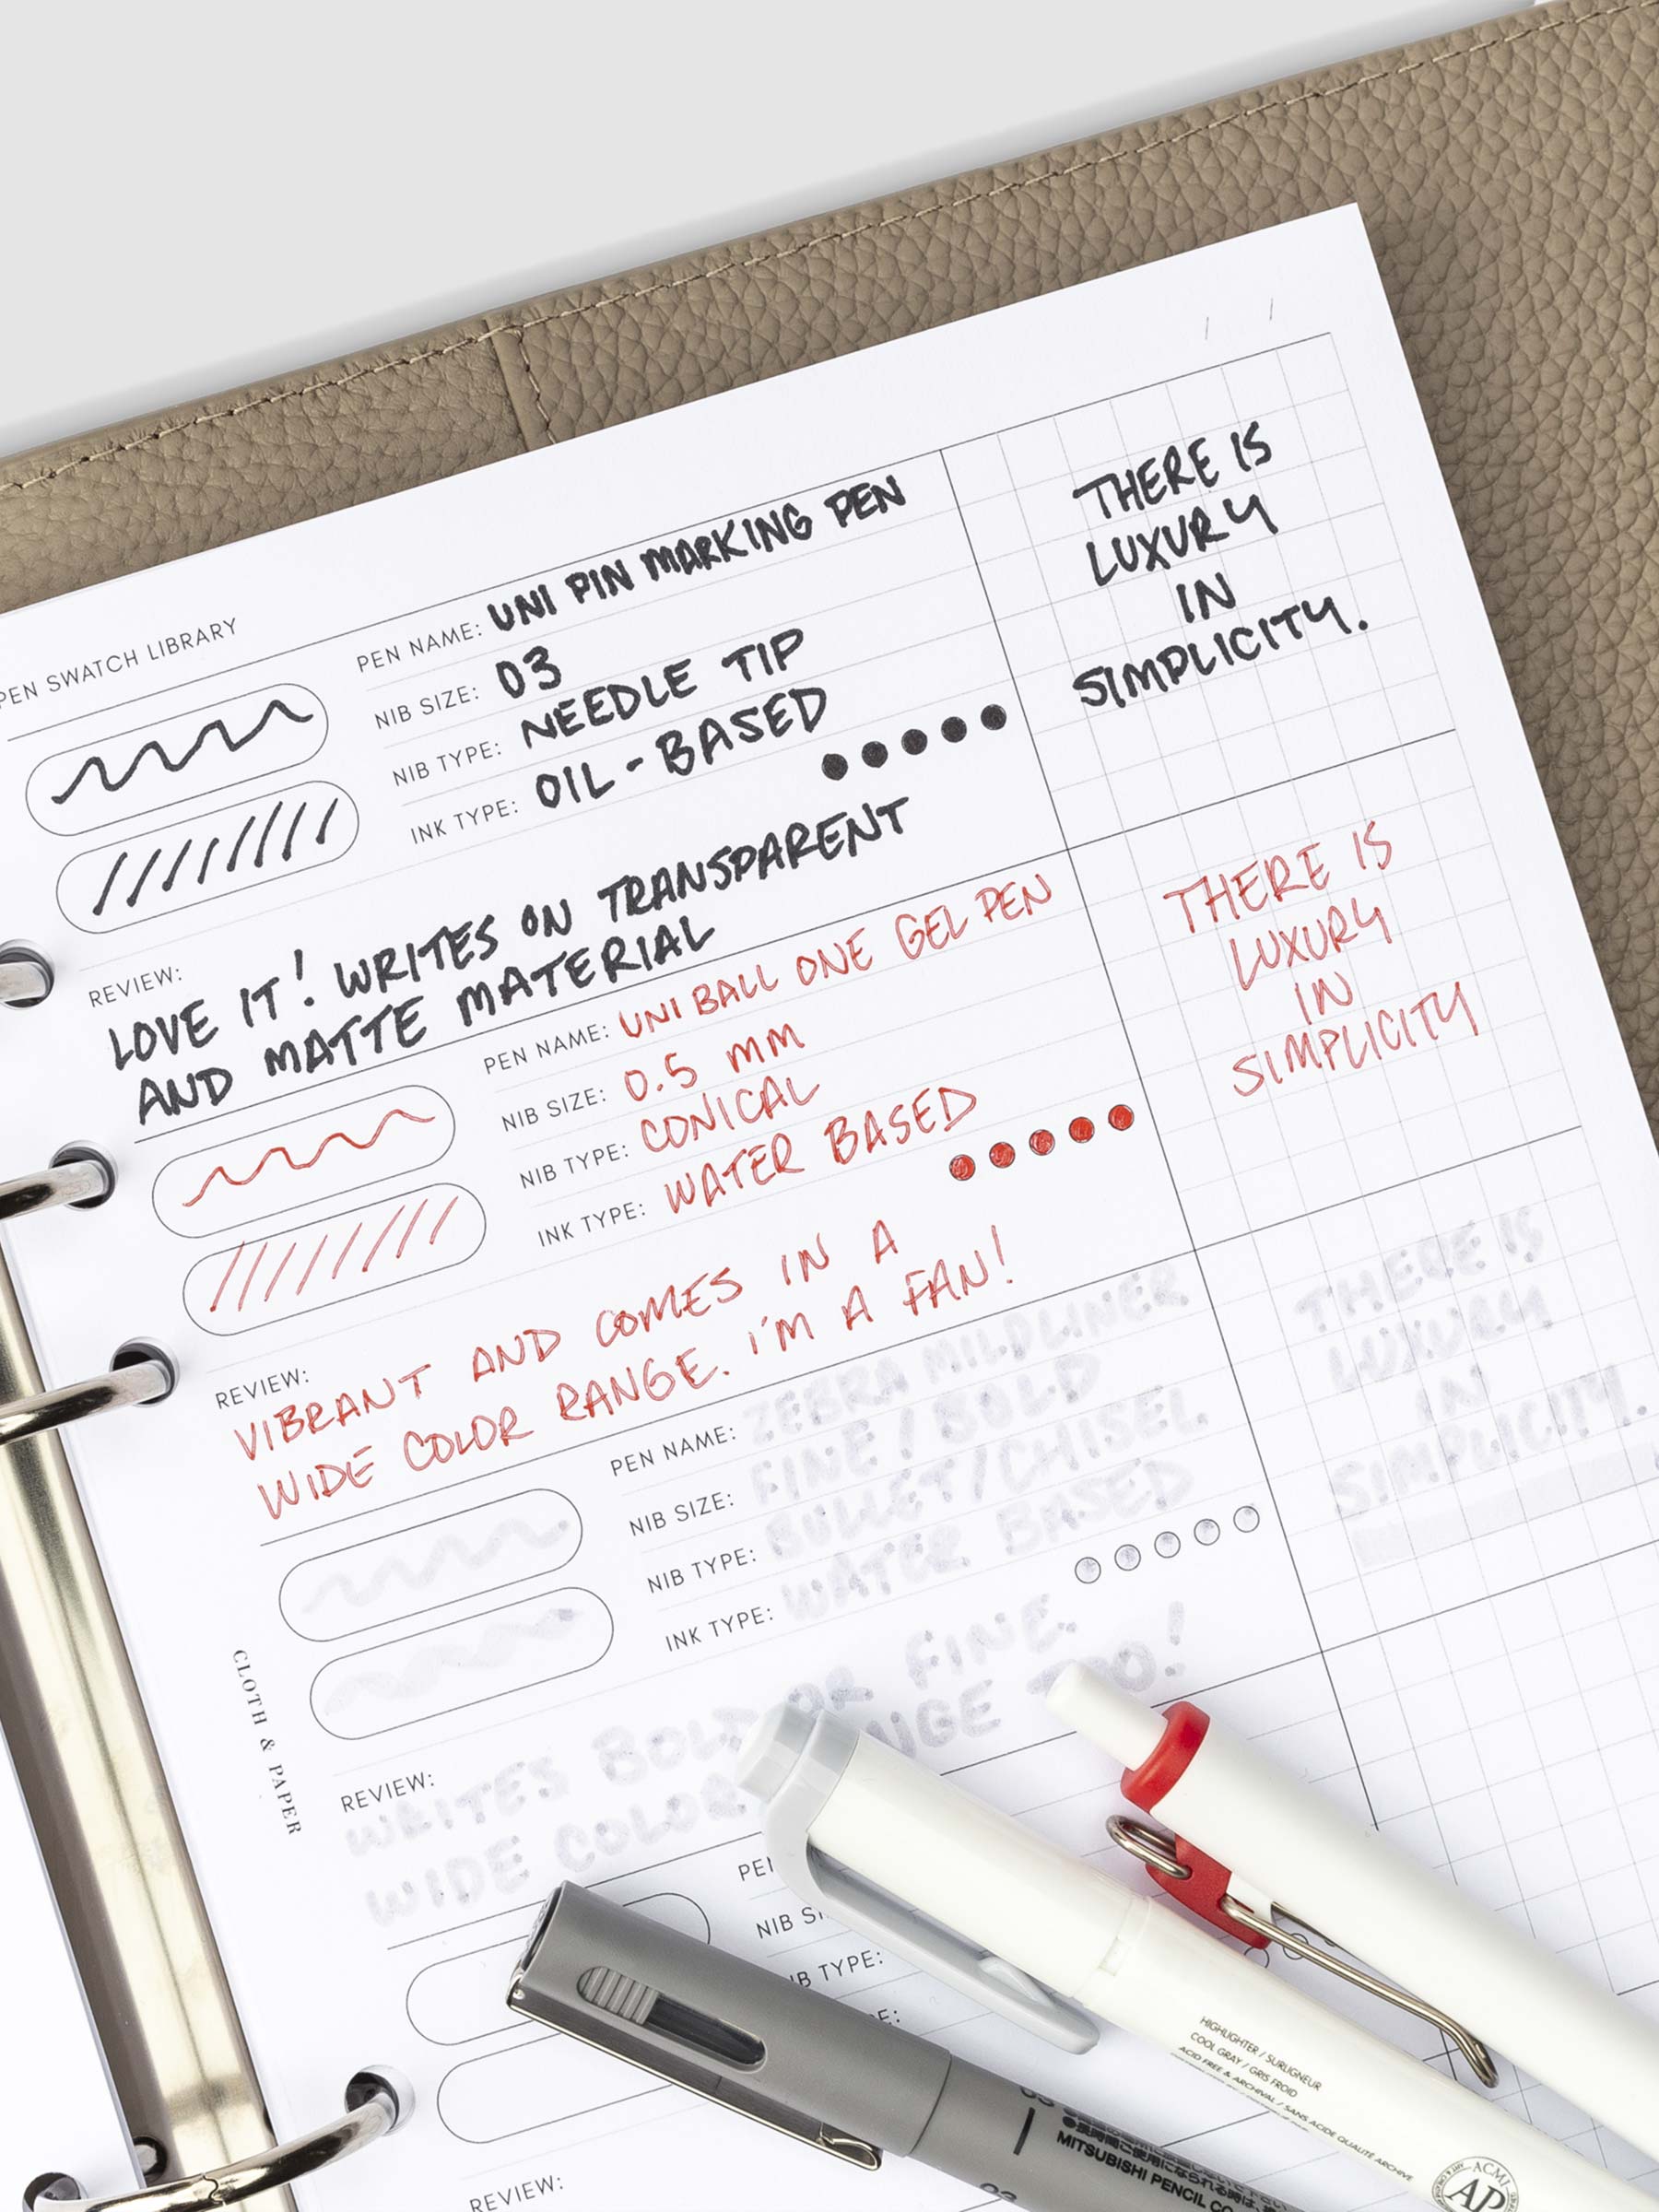 PEN SWATCH LIBRARY
PEN NAME: UNI PIN MARKING PEN
NIB SIZE: 03
NIB TYPE: NEEDLE TIP
INK TYPE: OIL-BASED
REVIEW:
LOVE IT! WRITES ON TRANSPARENT
AND MATTE MATERIAL
THERE IS
LUXURY
IN
SIMPLICITY.
PEN NAME: UNI BALL ONE GEL PEN
NIB SIZE: 0.5 mm
NIB TYPE: CONICAL
INK TYPE: WATER BASED
REVIEW:
VIBRANT AND COMES IN A
WIDE COLOR RANGE. I'M A FAN!
THERE IS
LUXURY
IN
SIMPLICITY
PEN NAME: ZEBRA MILDLINER
NIB SIZE: FINE / BOLD
NIB TYPE: BULLET/CHISEL
INK TYPE: WATER BASED
REVIEW:
WRITES BOLD OR FINE.
WIDE COLOR NGE TOO!
THERE IS
LUXURY
IN
SIMPLICITY.
CLOTH & PAPER
PEN
NIB SI
NIB TYPE:
E:
REVIEW:
HIGHLIGHTER / SURLIGNEUR
COOL GRAY / GRIS FROID
ACID FREE & ARCHIVAL / SANS ACIDE QUALITÉ ARCHIVE
ACMI
AP
MITSUBISHI PENCIL CO
03